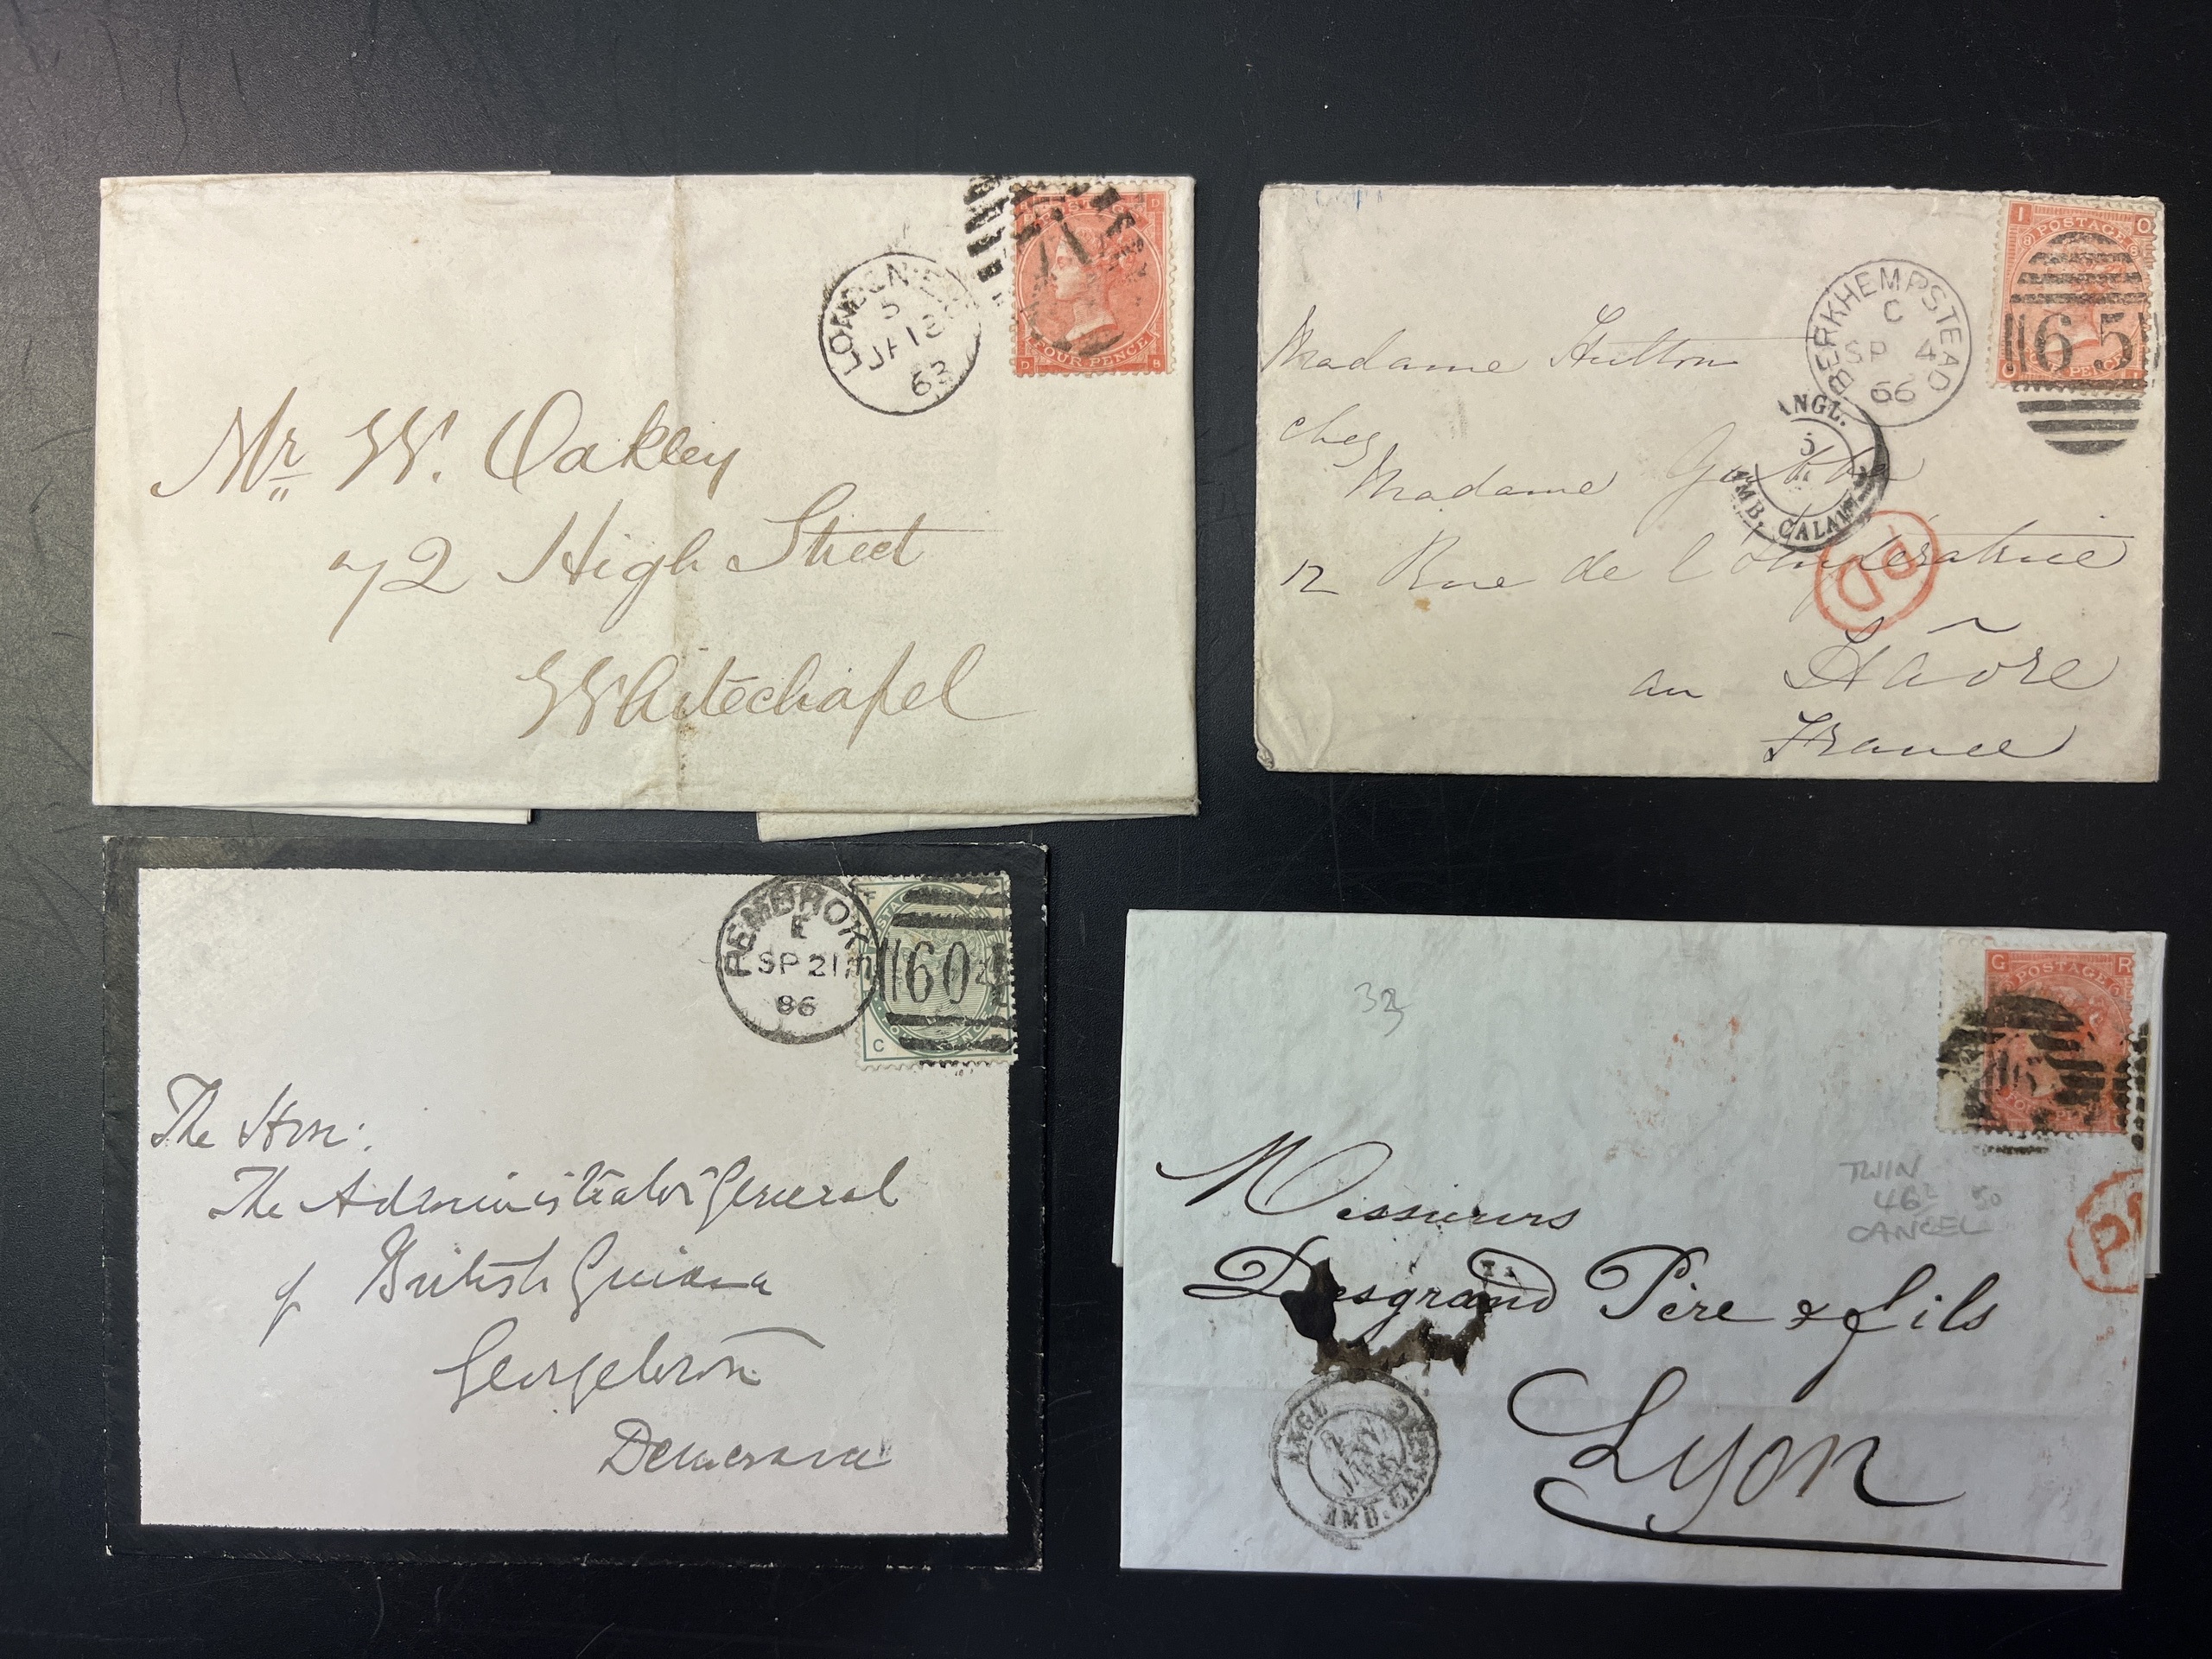 LONDON·E.C
5
JA 13
63
D
POSTAGE
FOUR PENCE
D
Mr W. Oakley
72 High Street
Whitechapel
BERKHEMPSTEAD
C
SP 4
66
I O
POSTAGE
65
O PENCE
ANGL.
5
AMB. CALAIS
PD
Madame Hutton
chez
Madame
12 Rue de l'Impératrice
au Hâvre
France
PEMBROK
E
SP 21
86
604
C
The Hon:
The Administrator General
of British Guiana
Georgetown
Demerara
G R
POSTAGE
TWIN
462
50
CANCEL
Messieurs
Desgrand Père & fils
Lyon
ANGL
2
JANV
AMB.